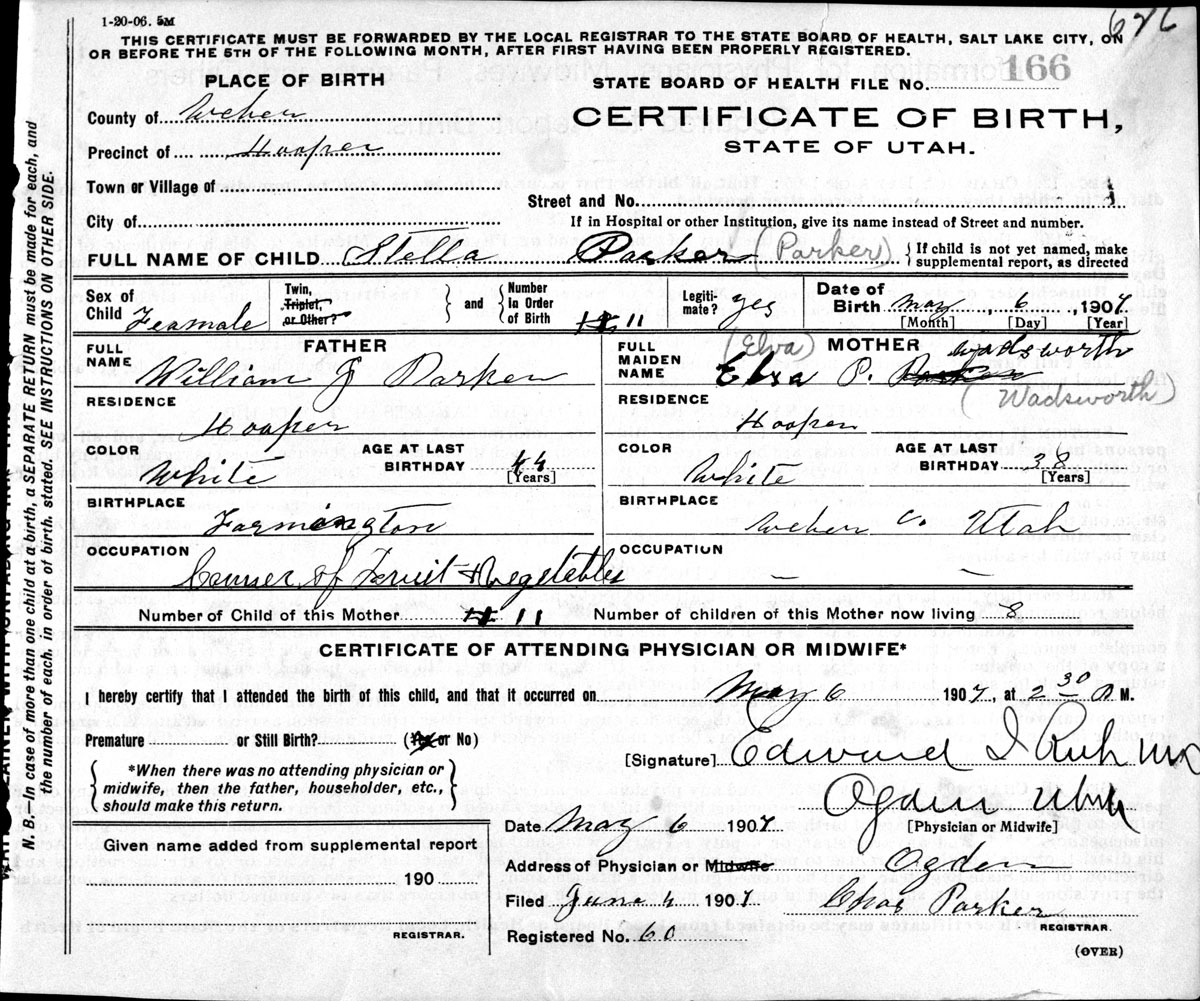 1-20-06. 5M
626
THIS CERTIFICATE MUST BE FORWARDED BY THE LOCAL REGISTRAR TO THE STATE BOARD OF HEALTH, SALT LAKE CITY, ON
OR BEFORE THE 5TH OF THE FOLLOWING MONTH, AFTER FIRST HAVING BEEN PROPERLY REGISTERED.
PLACE OF BIRTH
STATE BOARD OF HEALTH FILE No. 166
County of Weber
CERTIFICATE OF BIRTH,
Precinct of Hooper
STATE OF UTAH.
Town or Village of
Street and No.
City of
If in Hospital or other Institution, give its name instead of Street and number.
FULL NAME OF CHILD Stella Parker (Parker) {If child is not yet named, make
supplemental report, as directed
Sex of Child Feamale
Twin, Triplet, or Other? } and { Number in Order of Birth 11
Legitimate? yes
Date of Birth May 6, 1907
[Month] [Day] [Year]
FATHER
FULL NAME William J Parker
RESIDENCE
Hooper
COLOR White
AGE AT LAST BIRTHDAY 44
[Years]
BIRTHPLACE
Farmington
OCCUPATION
Canner of Fruit & Vegetables
(Elva) MOTHER Wadsworth
FULL MAIDEN NAME Elva P. Parker
(Wadsworth)
RESIDENCE
Hooper
COLOR White
AGE AT LAST BIRTHDAY 38
[Years]
BIRTHPLACE
Weber Co Utah
OCCUPATION
— —
Number of Child of this Mother 11 Number of children of this Mother now living 8
CERTIFICATE OF ATTENDING PHYSICIAN OR MIDWIFE*
I hereby certify that I attended the birth of this child, and that it occurred on May 6 1907, at 2 30 P M.
Premature or Still Birth? (Yes or No)
[Signature] Edward I Rich MD
*When there was no attending physician or
midwife, then the father, householder, etc.,
should make this return.
Ogden Utah
[Physician or Midwife]
Date May 6 1907
Given name added from supplemental report
190
REGISTRAR.
Address of Physician or Midwife Ogden
Filed June 6 1907. Chas Parker
REGISTRAR.
Registered No. 60
(OVER)
N. B.—In case of more than one child at a birth, a SEPARATE RETURN must be made for each, and
the number of each, in order of birth, stated. SEE INSTRUCTIONS ON OTHER SIDE.